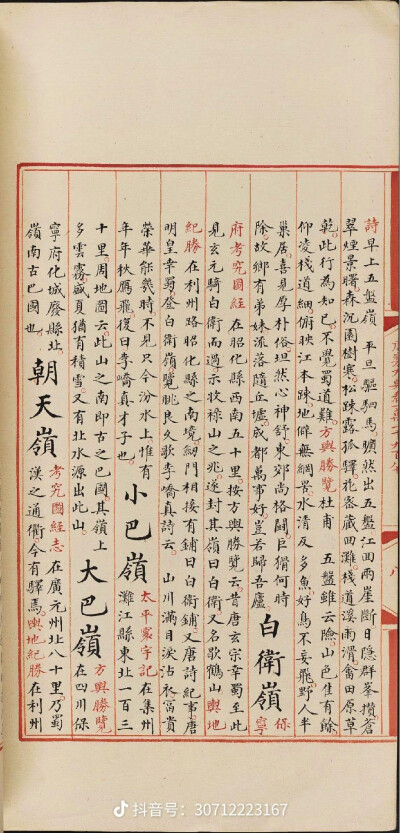 詩早上五盤嶺平旦驅駟馬曠然出五盤江回兩崖斷日隱群峯攢蒼
翠煙景曙森沉園樹寒松踈露孤驛花密藏回灘棧道溪雨滑畬田原草
乾此行為知己不覺蜀道難方輿勝覽杜甫 五盤雖云險山色佳有餘
仰凌棧道細俯映江木踈地僻無網罟水清反多魚好鳥不妄飛野人半
巢居喜見厚朴俗坦然心神舒東郊尚格鬪巨猾何時
除故鄉有弟妹流落隨丘墟成都萬事好豈若歸吾廬
白衛嶺
保
寧
府考究圖經在昭化縣西南五十里按方輿勝覽云昔唐玄宗幸蜀至此
見玄元騎白衛而過示收祿山之兆遂封其嶺曰白衛又名歌鶴山輿地
紀勝在利州路昭化縣之南境細門相接有鋪曰白衛鋪又唐詩紀事唐
明皇幸蜀登白衛嶺覽眺良久歌李嶠真詩云 山川滿目淚沾衣富貴
榮華能幾時不見只今汾水上惟有
年年秋鴈飛復曰李嶠真才子也
小巴嶺
太平寰宇記在集州
灘江縣東北一百三
十里周地圖云此山之南即古之巴國其嶺上
多雲霧盛夏猶有積雪又有北水源出此山
大巴嶺
方輿勝覽
在四川保
寧府化城廢縣北
嶺南古巴國也
朝天嶺
考究圖經志在廣元州北八十里乃蜀
漢之通衢今有驛馬輿地紀勝在利州
抖音号:30712223167